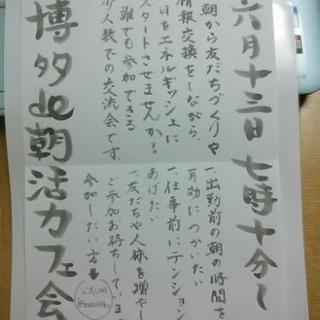 六月十三日七時十分〜
朝から友だちづくりや
情報交換をしながら、
日をエネルギッシュに
スタートさせませんか？
誰でも参加できる
少人数での交流会です。
博多de朝活カフェ会
一、出勤前の朝の時間を
有効につかいたい
一、仕事前にテンション
あげたい
一、友だちや人脈を増やし
ご参加お待ちしています
参加したい方
公式LINE